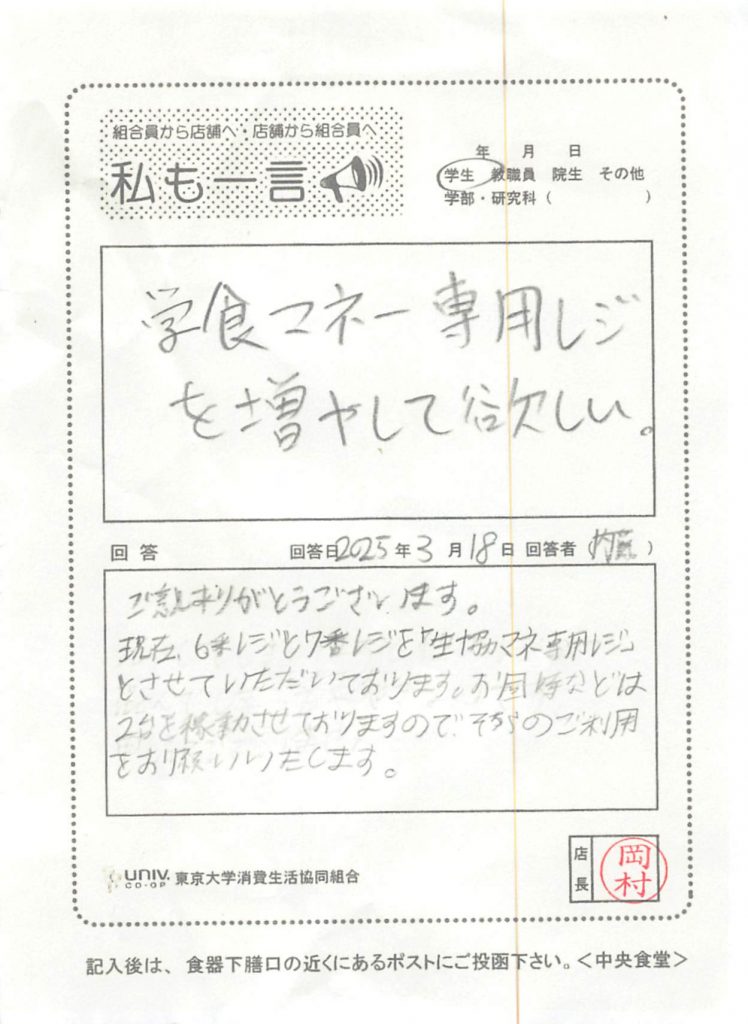 組合員から店舗へ・店舗から組合員へ
私も一言
年 月 日
学生 教職員 院生 その他
学部・研究科( )
学食マネー専用レジ
を増やして欲しい。
回答 回答日2025年3月18日 回答者( )
ご意見ありがとうございます。
現在、6番レジと7番レジを「生協マネー専用レジ」
とさせていただいております。お昼時などは
2台を稼動させておりますので、そちらのご利用
をお願いいたします。
UNIV. CO-OP 東京大学消費生活協同組合
店長 岡村
記入後は、食器下膳口の近くにあるポストにご投函下さい。<中央食堂>